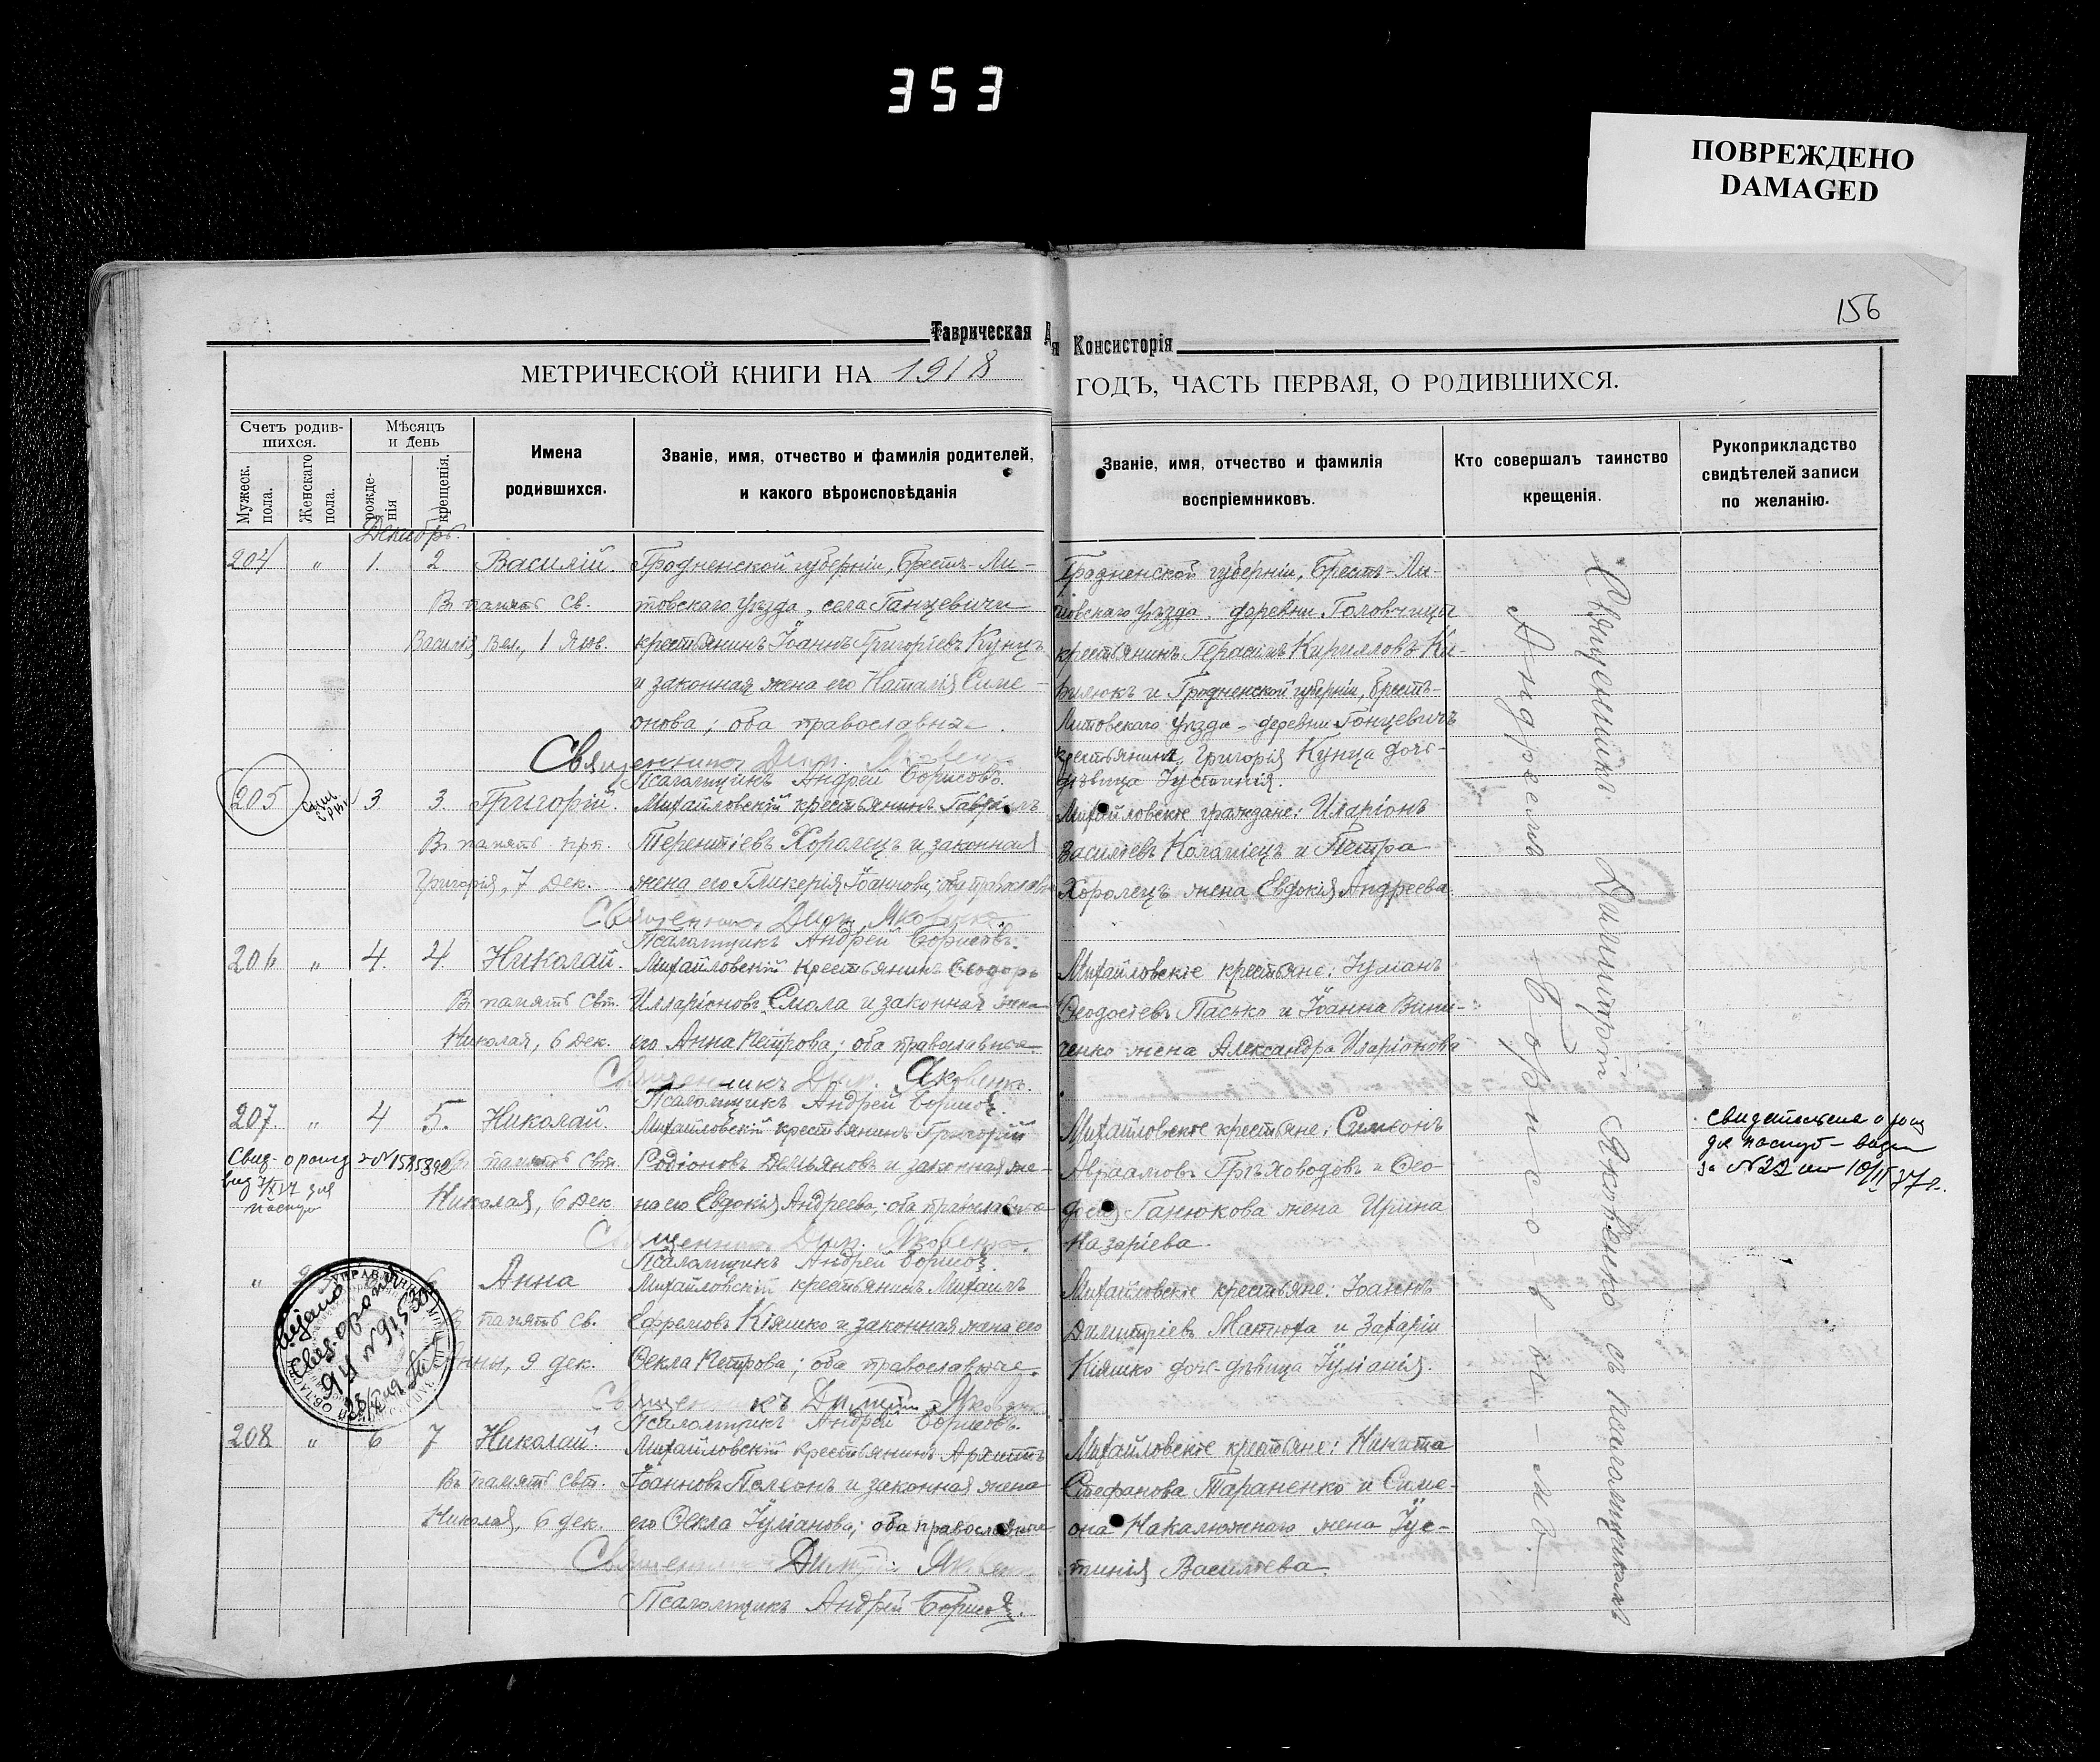 353
ПОВРЕЖДЕНО
DAMAGED
156
Таврическая
Консисторія
МЕТРИЧЕСКОЙ КНИГИ НА 1918
ГОДЪ, ЧАСТЬ ПЕРВАЯ, О РОДИВШИХСЯ.
Счетъ родив-
шихся.
Мужеск. пола.
Женскаго пола.
Мѣсяцъ
и день
рожде-
нія
крещенія.
Имена
родившихся.
Званіе, имя, отчество и фамилія родителей,
и какого вѣроисповѣданія
Званіе, имя, отчество и фамилія
воспріемниковъ.
Кто совершалъ таинство
крещенія.
Рукоприкладство
свидѣтелей записи
по желанію.
Декабрь.
204 " 1. 2 Василій.
Въ память св.
Василія Вел., 1 Янв.
Гродненской губерніи, Брестъ-Ли-
товскаго уѣзда, села Ганцевичи
крестьянинъ Іоаннъ Григоріевъ Кунцъ
и законная жена его Наталія Симе-
онова; оба православные.
Священникъ Дим. Яковенко
Псаломщикъ Андрей Борисовъ.
Гродненской губерніи, Брестъ-Ли-
товскаго уѣзда, деревни Головчицы
крестьянинъ Герасимъ Кирилловъ Ки-
билюкъ и Гродненской губерніи, Брестъ-
Литовскаго уѣзда - деревни Ганцевичъ
крестьянина Григорія Кунца дочь-
дѣвица Іустинія.
205 3 3 Григорій.
Въ память прп.
Григорія, 7 Дек.
Михайловскій крестьянинъ Гавріилъ
Терентіевъ Хоролецъ и законная
жена его Гликерія Іоаннова; оба православн
Священникъ Дим. Яковенко.
Псаломщикъ Андрей Борисовъ.
Михайловскіе граждане: Иларіонъ
Василіевъ Коломіецъ и Петра
Хоролецъ жена Евдокія Андреева.
206 " 4. 4. Николай.
Въ память свт.
Николая, 6 Дек.
Михайловскій крестьянинъ Ѳеодоръ
Илларіоновъ Смола и законная жена
его Анна Петрова; оба православные.
Священникъ Дим. Яковенко.
Псаломщикъ Андрей Борисовъ.
Михайловскіе крестьяне: Іуліанъ
Ѳеодосіевъ Пасько и Іоанна Вини-
ченко жена Александра Иларіонова
207. " 4 5. Николай.
память свт.
Николая, 6 Дек.
Михайловскій крестьянинъ Григорій
Родіоновъ Демьяновъ и законная же-
на его Евдокія Андреева; оба православные
Священникъ Дим. Яковенко.
Псаломщикъ Андрей Борисовъ.
Михайловскіе крестьяне: Симеонъ
Авраамовъ Грѣховодовъ и Ѳео-
досія Ганюкова жена Ирина
Назаріева.
за № 22
" Анна
память св.
Анны, 9 дек.
Михайловскій крестьянинъ Михаилъ
Ефремовъ Кіяшко и законная жена его
Ѳекла Петрова; оба православные.
Священникъ Димитрій Яковенко
Псаломщикъ Андрей Борисовъ.
Михайловскіе крестьяне: Іоаннъ
Димитріевъ Матюха и Захарія
Кіяшко дочь-дѣвица Іуліанія.
208 " 6 7 Николай.
Въ память свт.
Николая, 6 дек.
Михайловскій крестьянинъ Архиппъ
Іоанновъ Полеонъ и законная жена
его Ѳекла Іуліанова; оба православные
Священникъ Димитрій Яковенко
Псаломщикъ Андрей Борисовъ.
Михайловскіе крестьяне: Никита
Стефанова Тараненко и Симе-
она Накалюжнаго жена Іус-
тинія Василіева.
Священникъ Димитрій Яковенко съ псаломщикомъ
Андреемъ Борисо-в-ы-мъ.